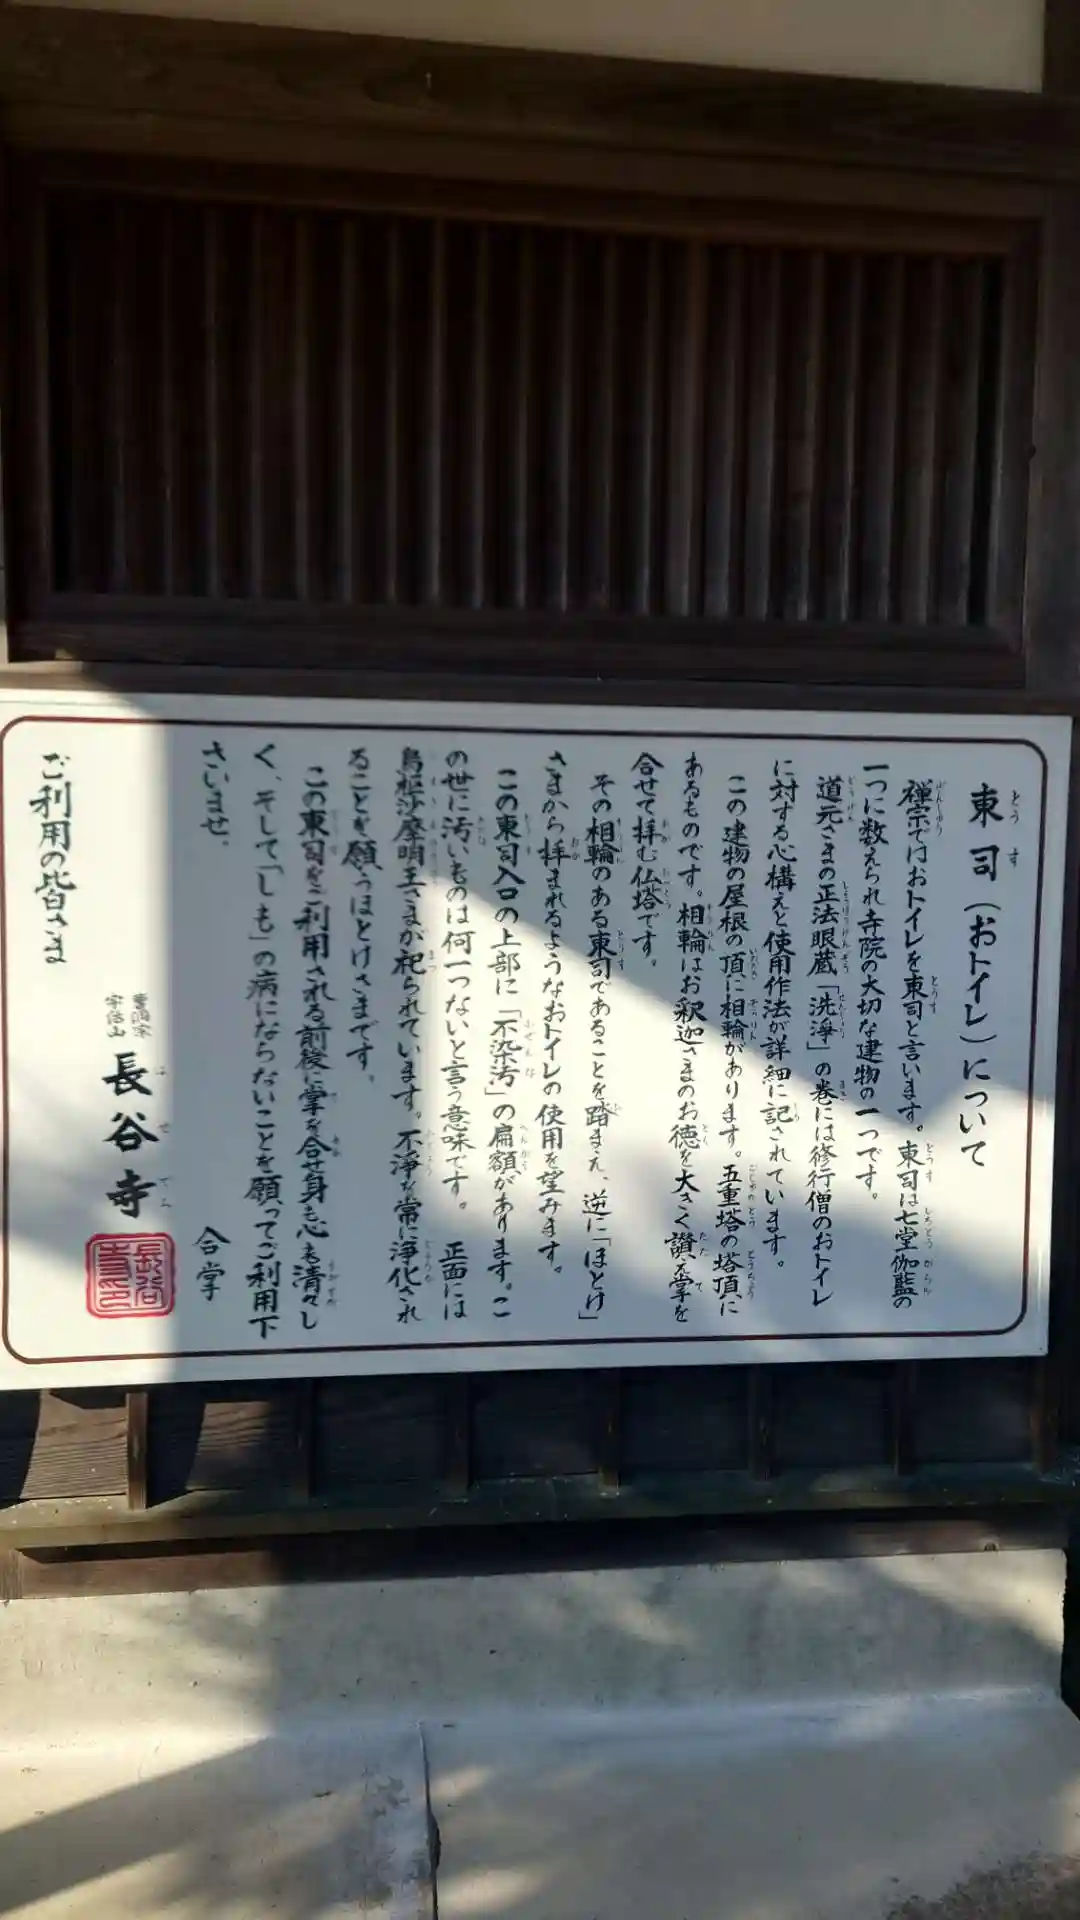 東司(おトイレ)について
禅宗ではおトイレを東司と言います。東司は七堂伽藍の
一つに数えられ寺院の大切な建物の一つです。
道元さまの正法眼蔵「洗浄」の巻には修行僧のおトイレ
に対する心構えと使用作法が詳細に記されています。
この建物の屋根の頂に相輪があります。五重塔の塔頂に
あるものです。相輪はお釈迦さまのお徳を大きく讃え掌を
合せて拝む仏塔です。
その相輪のある東司であることを踏まえ、逆に「ほとけ」
さまから拝まれるようなおトイレの使用を望みます。
この東司入口の上部に「不染汚」の扁額があります。こ
の世に汚いものは何一つないと言う意味です。正面には
烏枢沙摩明王さまが祀られています。不浄を常に浄化され
ることを願うほとけさまです。
この東司をご利用される前後に掌を合せ身も心も清々し
く、そして「しも」の病にならないことを願ってご利用下
さいませ。
合掌
曹洞宗
長谷寺
ご利用の皆さま